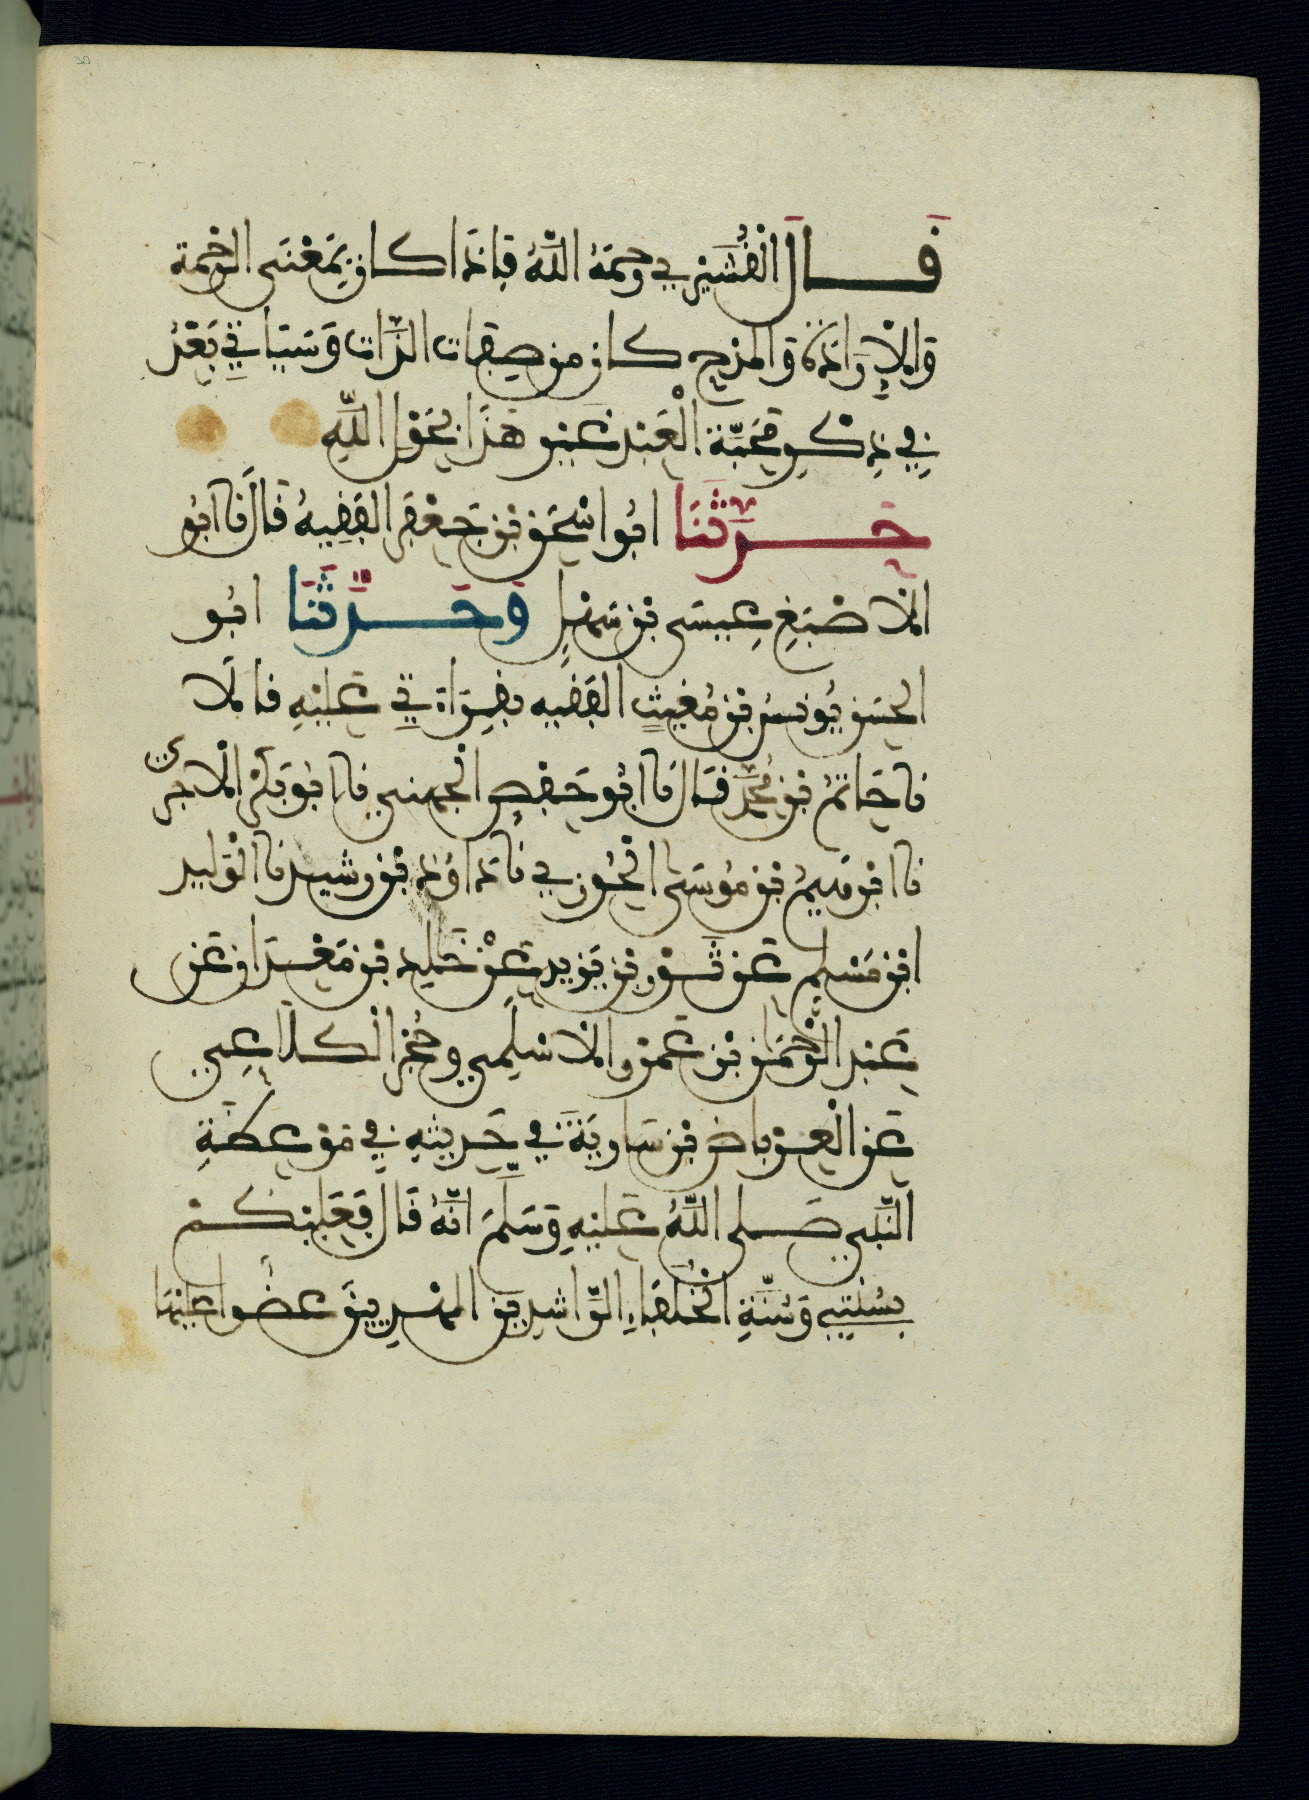 قَالَ الْقُشَيْرِي رحِمَهُ اللَّهُ فَإِذَا كان بِمَعْنَى الرَّحْمة
وَالْإِرَادَة وَالمدْحِ كان من صِفات الذَّات وَسَيَاتِي بَعْدُ
فِي ذِكْرِ مَحَبَّة الْعَبْدِ غَيْرُ هَذَا بِحَوْلِ اللَّهِ
حَدَّثَنَا ابُو اسْحَق بْن جَعْفَرٍ الفَقِيهُ قَالَ نا ابُو
الاصْبَغِ عِيسَى بْن سَهْلٍ وَحَدَّثَنَا ابُو
الحسَن يُونسُ بْن مُغِيثٍ الفَقِيه بقِرَاءَتِي عَلَيْهِ قالَا
نا حَاتمُ بْن مُحَمَّد قَالَ نَا ابُو حَفْصٍ الْجُهَنِي نا ابُو بَكْرٍ الْاجرِّي
نا ابْرَهِيمُ بْن مُوسَى الْجَوْزِي نا دَاوُد بْن رشيد نا الْوَلِيد
ابْن مسْلِمٍ عَن ثَوْر بْن يَزِيد عَنْ خَلِيد بْن مَعْدَان عَن
عَبْد الرَّحْمَن بْن عَمْرو الاسْلَمِي وحُجْر الْكلَاعِي
عَن الْعِرْبَاض بْن سَارِيَةَ فِي حَدِيثِهِ فِي مَوْعِظَةِ
النَّبِي صَلى اللَّهُ عَلَيْهِ وَسَلَّمَ انَّهُ قَالَ فَعَلَيْكُمْ
بِسُنَّتِي وَسُنَّةِ الْخُلَفَاءِ الرَّاشِدِينَ الْمهْدِيِّينَ عَضُّوا عَلَيْهَا